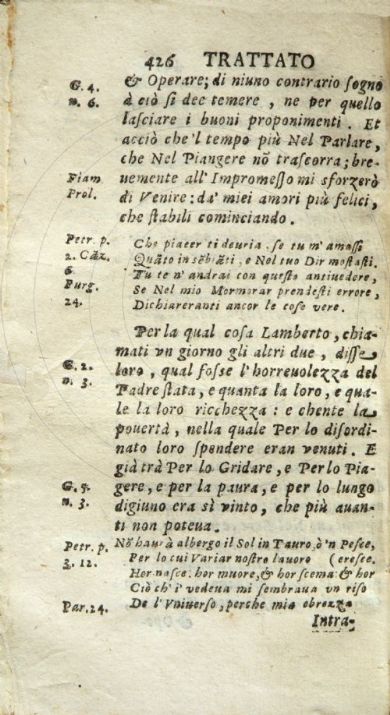 426 TRATTATO
G. 4. & Operare; di niuno contrario sogno
n. 6. à ciò si dee temere, ne per quello
lasciare i buoni proponimenti. Et
acciò che'l tempo più Nel Parlare,
che Nel Piangere nõ trascorra; bre-
Fiam uemente all' Impromesso mi sforzerò
Prol. di Venire: da' miei amori più felici,
che stabili cominciando.
Petr. p. Che piacer ti deuria, se tu m' amassi
2. Cãz. Quãto in sẽbiãti, e Nel tuo Dir mostasti.
6 Tu te n' andrai con questo antiuedere,
Purg. Se Nel mio Mormorar prendesti errore,
24. Dichiareranti ancor le cose vere.
Per la qual cosa Lamberto, chia-
mati vn giorno gli altri due, disse
G. 2. loro, qual fosse l'horreuolezza del
n. 3. Padre stata, e quanta la loro, e qua-
le la loro ricchezza: e chente la
pouertà, nella quale Per lo disordi-
nato loro spendere eran venuti. E
già trà Per lo Gridare, e Per lo Pia-
G. 5. gere, e per la paura, e per lo lungo
n. 3. digiuno era sì vinto, che più auan-
ti non poteua.
Petr. p. Nõ haurà albergo il Sol in Tauro, ò'n Pesce,
3. 12. Per lo cui Variar nostro lauoro (cresce.
Hor nasce, hor muore, & hor scema & hor
Ciò ch' i' vedeua mi sembraua vn riso
Par. 24. De l' Vniuerso, perche mia ebrezza
Intra-